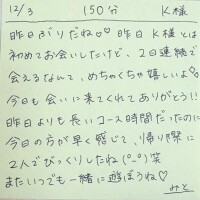 12/3 150分 K様
昨日ぶりだね♡ 昨日K様とは
初めてお会いしたけど、2日連続で
会えるなんて、めちゃくちゃ嬉しいよ♡。
今日も会いに来てくれてありがとう!!
昨日よりも長いコース時間だったのに
今日の方が早く感じて、帰り際に
2人でびっくりしたね(°o°)笑
またいつでも一緒に遊ぼうね♡
みと